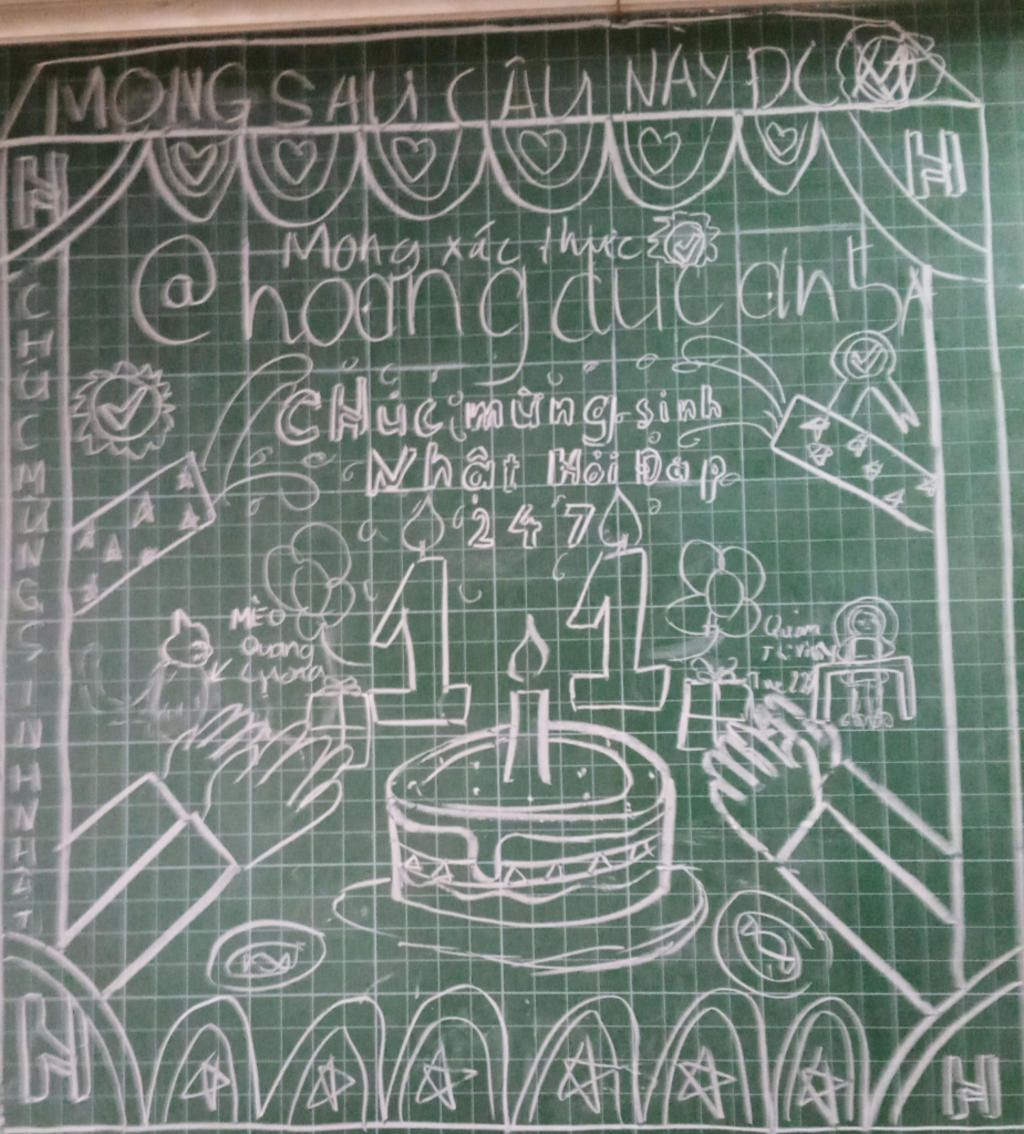 MONG SAU CÂU NÀY ĐC
H
H
Mong xác thực
@hoangducanh5A
CHÚC MỪNG SINH NHẬT
CHúc mừng sinh
Nhật Hỏi Đáp
247
11
MÈO
Quang
H
H